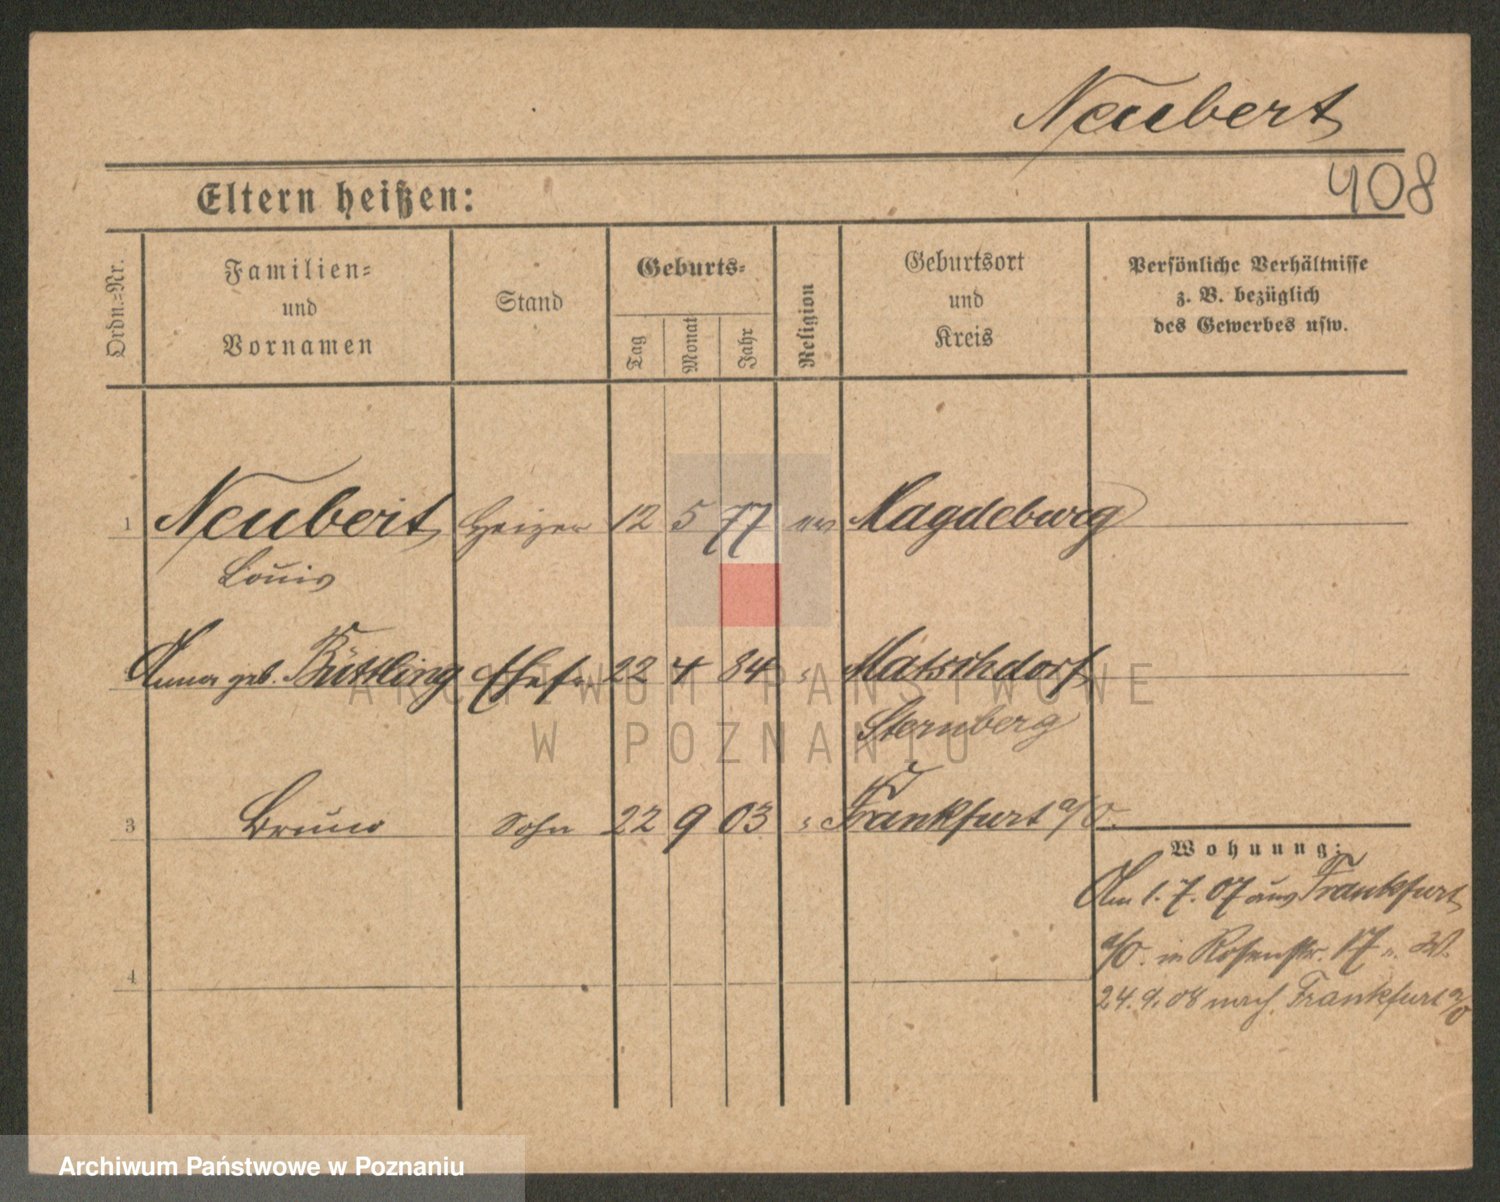 Neubert
408
Eltern heißen:
Ordn.-Nr.
Familien-
und
Vornamen
Stand
Geburts-
Tag
Monat
Jahr
Religion
Geburtsort
und
Kreis
Persönliche Verhältnisse
z. B. bezüglich
des Gewerbes usw.
1 Neubert Heizer 12 5 77 ev Magdeburg
Louis
Anna geb. Ehefr. 22 4 84 " Matschdorf
Sternberg
3 Bruno Sohn 22 9 03 " Frankfurt a/O.
Wohnung:
Am 1.7.07 aus Frankfurt
a/O. in Rosenstr. 17
4
24.9.08 nach Frankfurt a/O
ARCHIWUM PAŃSTWOWE
W POZNANIU
Archiwum Państwowe w Poznaniu